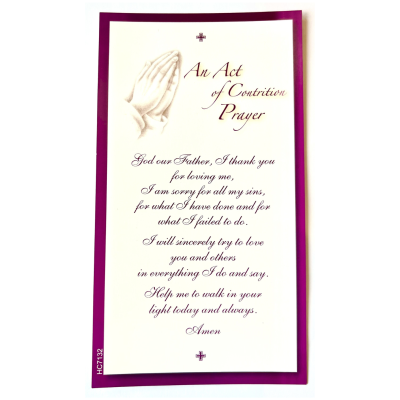 An Act
of Contrition
Prayer
God our Father, I thank you
for loving me,
I am sorry for all my sins,
for what I have done and for
what I failed to do.
I will sincerely try to love
you and others
in everything I do and say.
Help me to walk in your
light today and always.
Amen
HC7132